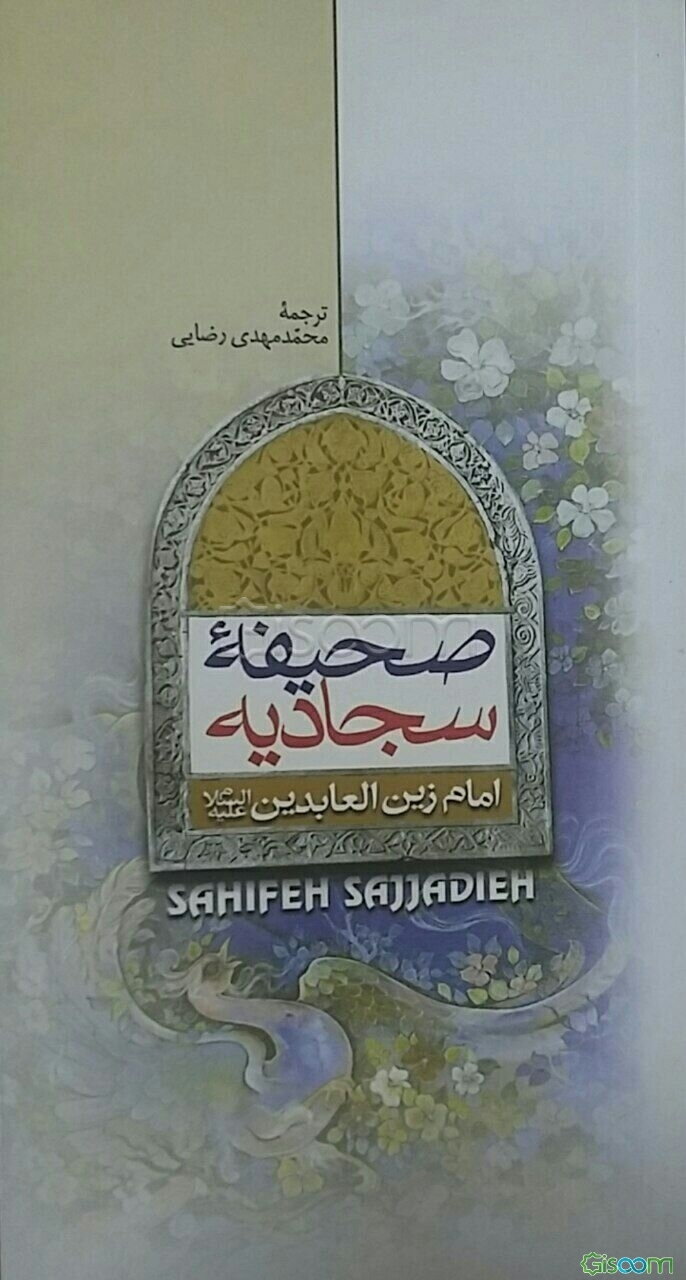 ترجمهٔ
محمّدمهدی رضایی
صحیفهٔ
سجادیه
امام زین العابدین علیه‌السلام
SAHIFEH SAJJADIEH
Gisoom
Gisoom